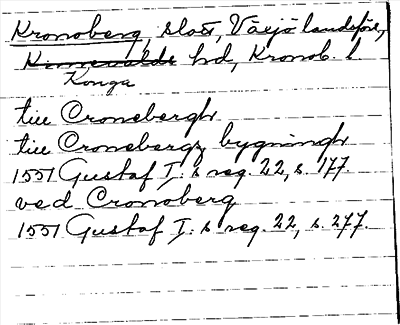 Kronoberg, slott, Växjö landsförs.,
Kinnevalds hd, Kronob. l
Konga
till Cronebergh
till Cronebergz bygningh
1551 Gustaf I:s reg. 22, s. 177.
ved Cronoberg
1551 Gustaf I:s reg. 22, s. 277.